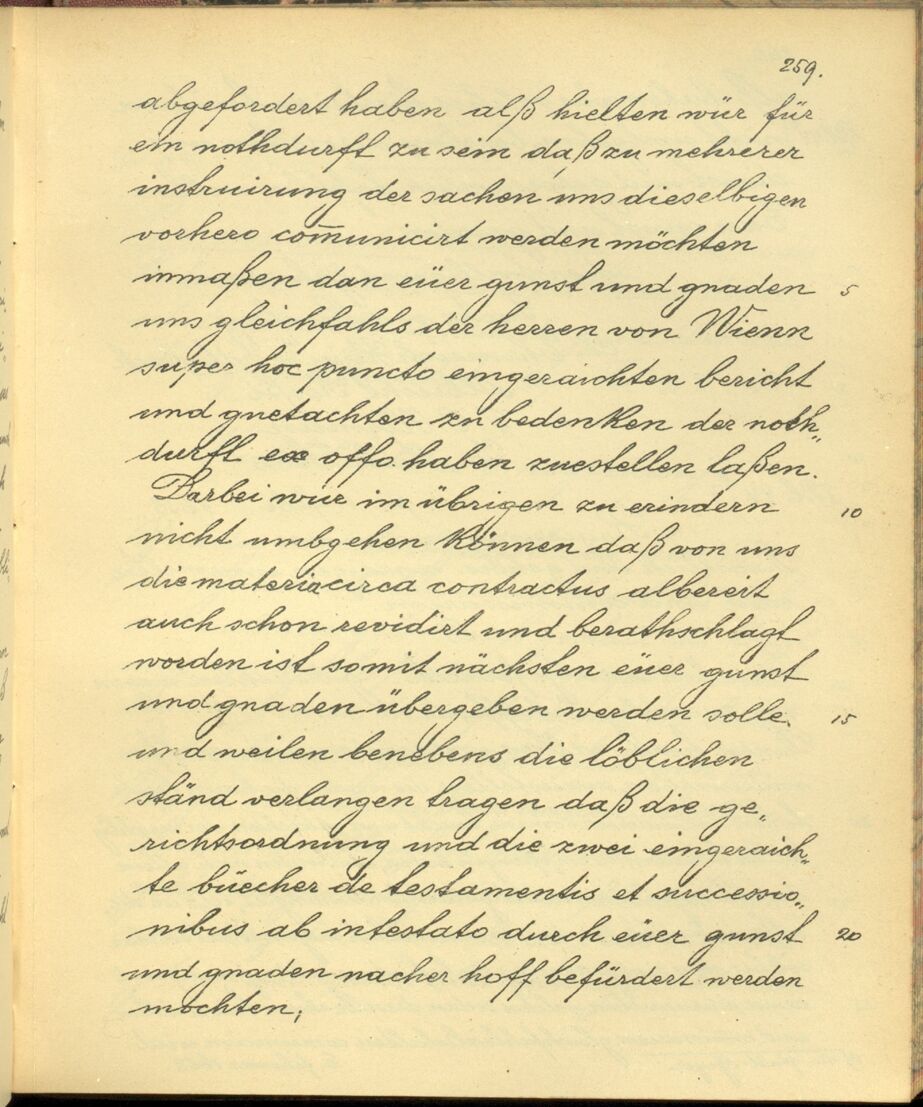 259.
abgefordert haben alß hielten wür für
ein nothdurft zu sein daß zu mehrerer
instruirung der sachen uns dieselbigen
vorhero com̄unicirt werden möchten
inmaßen dan eüer gunst und gnaden 5
uns gleichfahls der herren von Wienn
super hoc puncto eingeraichten bericht
und guetachten zu bedenken der noth„
durft ex offo. haben zuestellen laßen.
Darbei wür im übrigen zu erindern 10
nicht umbgehen können daß von uns
die materia circa contractus albereit
auch schon revidirt und berathschlagt
worden ist somit nächsten eüer gunst
und gnaden übergeben werden solle. 15
und weilen benebens die löblichen
ständ verlangen tragen daß die ge„
richtsordnung und die zwei eingeraich„
te büecher de testamentis et successio„
nibus ab intestato durch eüer gunst 20
und gnaden nacher hoff befürdert werden
mochten;